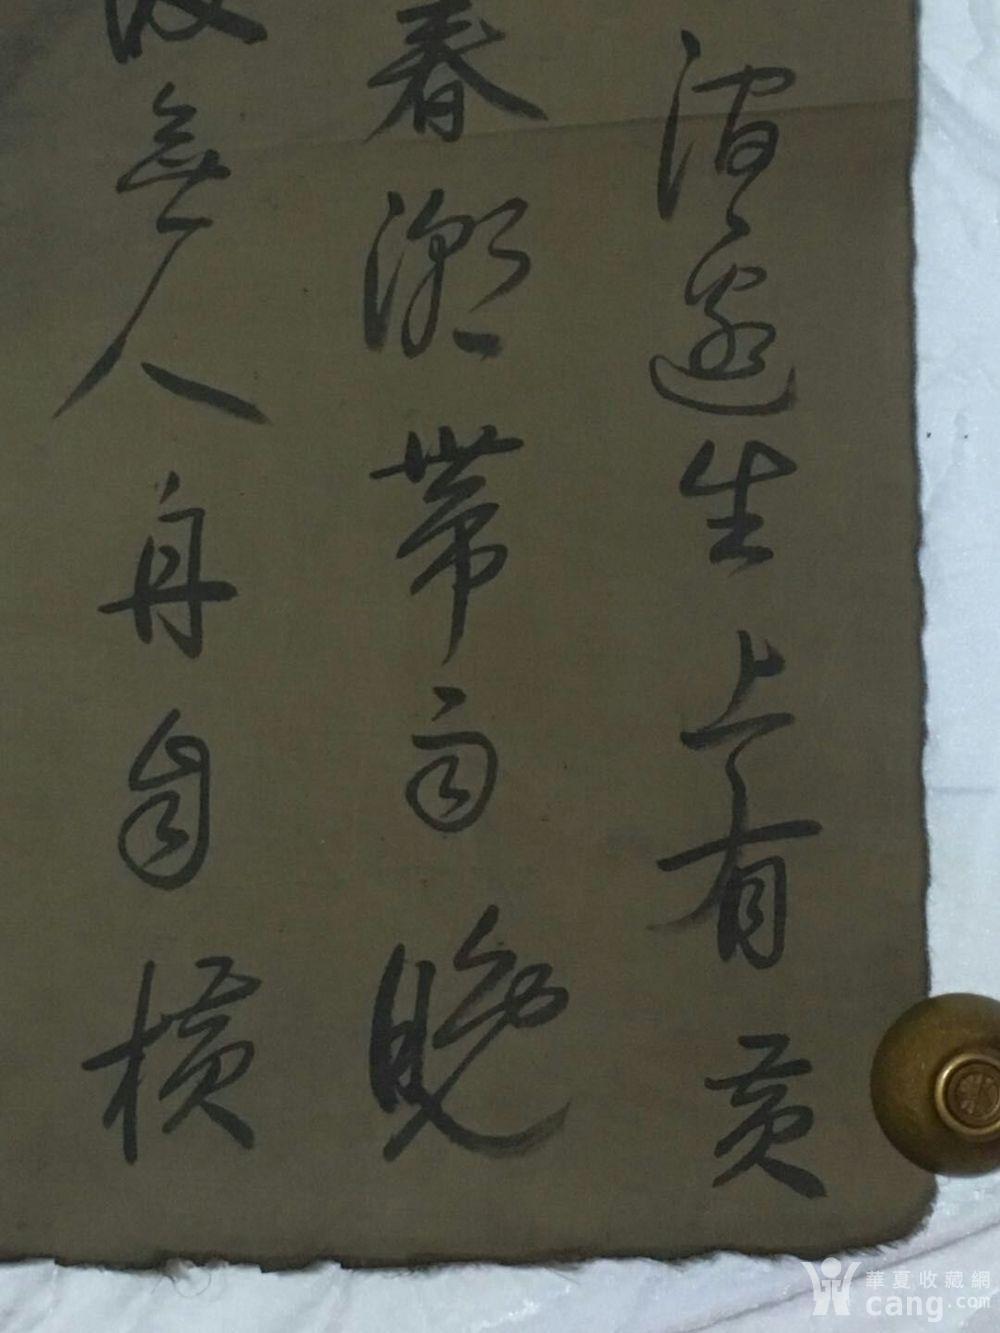 澗邊生上有黄
春潮帶雨晚
渡無人舟自橫
華夏收藏網
cang.com